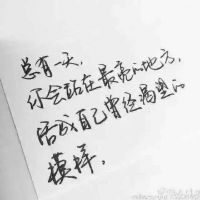 总有一天，
你会站在最亮的地方，
活成自己曾经渴望的
模样。